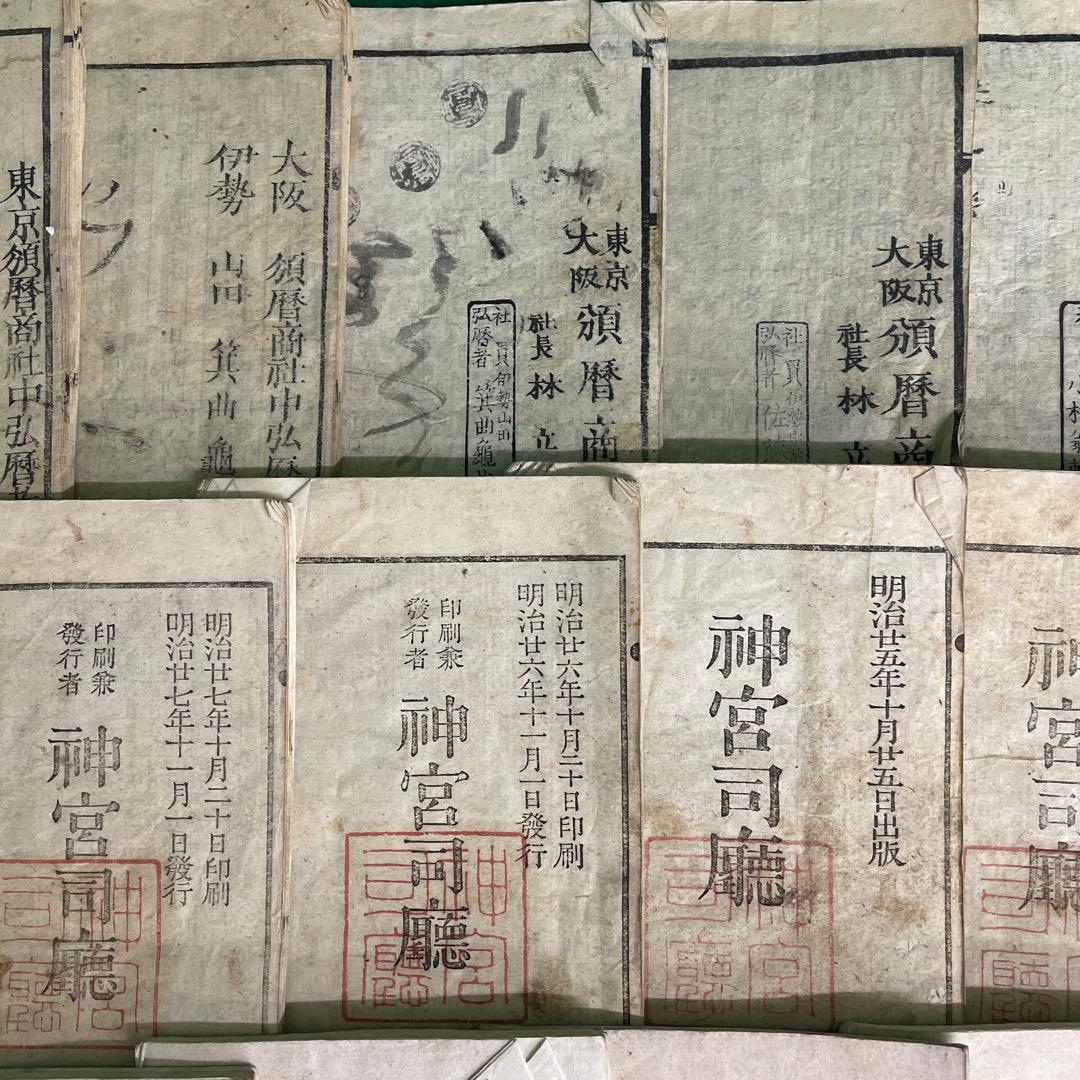 東京頒暦商社中弘暦者
大阪 頒暦商社中弘暦
伊勢 山田 箕曲龜
東京
大阪
頒暦商
社長 林 立
社員 伊勢山田
弘暦者 箕曲龜
東京
大阪
頒暦商
社長 林 立
社員伊勢
弘暦者 佐藤
明治廿七年十月二十日印刷
明治廿七年十一月一日發行
印刷兼
發行者
神宮司廳
神宮司廳
明治廿六年十月二十日印刷
明治廿六年十一月一日發行
印刷兼
發行者
神宮司廳
神宮司廳
明治廿五年十月廿五日出版
神宮司廳
神宮司廳
神宮司廳